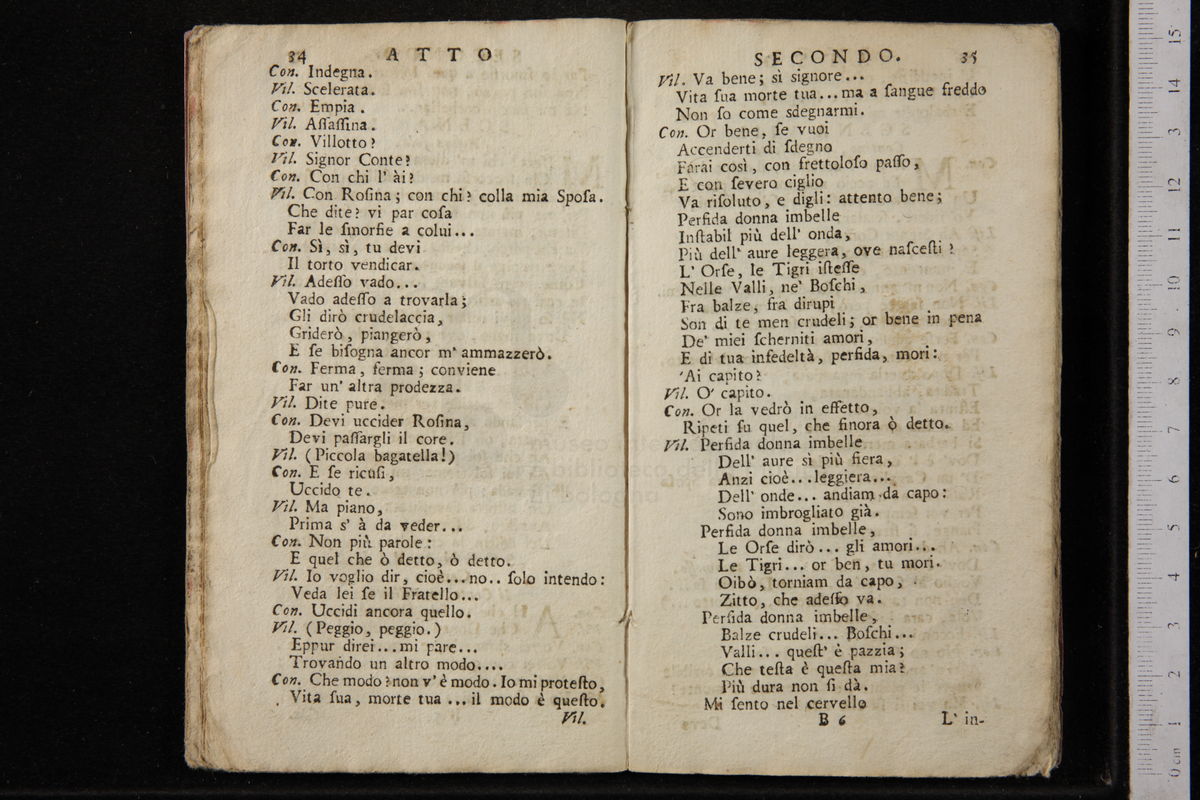 34 ATTO
Con. Indegna.
Vil. Scelerata.
Con. Empia.
Vil. Aſſaſſina.
Con. Villotto?
Vil. Signor Conte?
Con. Con chi l' ài?
Vil. Con Roſina; con chi? colla mia Spoſa.
Che dite? vi par coſa
Far le ſmorfie a colui...
Con. Sì, sì, tu devi
Il torto vendicar.
Vil. Adeſſo vado...
Vado adeſſo a trovarla;
Gli dirò crudelaccia,
Griderò, piangerò,
E ſe biſogna ancor m' ammazzerò.
Con. Ferma, ferma; conviene
Far un' altra prodezza.
Vil. Dite pure.
Con. Devi uccider Roſina,
Devi paſſargli il core.
Vil. (Piccola bagatella!)
Con. E ſe ricuſi,
Uccido te.
Vil. Ma piano,
Prima s' à da veder...
Con. Non più parole:
E quel che ò detto, ò detto.
Vil. Io voglio dir, cioè...no.. ſolo intendo:
Veda lei ſe il Fratello...
Con. Uccidi ancora quello.
Vil. (Peggio, peggio.)
Eppur direi...mi pare...
Trovando un altro modo....
Con. Che modo? non v' è modo. Io mi proteſto,
Vita ſua, morte tua ... il modo è queſto.
Vil.
SECONDO. 35
Vil. Va bene; sì signore...
Vita ſua morte tua...ma a ſangue freddo
Non ſo come sdegnarmi.
Con. Or bene, ſe vuoi
Accenderti di ſdegno
Farai così, con frettoloſo paſſo,
E con ſevero ciglio
Va riſoluto, e digli: attento bene;
Perfida donna imbelle
Inſtabil più dell' onda,
Più dell' aure leggera, ove naſceſti?
L' Orſe, le Tigri iſteſſe
Nelle Valli, ne' Boſchi,
Fra balze, fra dirupi
Son di te men crudeli; or bene in pena
De' miei ſcherniti amori,
E di tua infedeltà, perfida, mori:
'Ai capito?
Vil. O' capito.
Con. Or la vedrò in effetto,
Ripeti ſu quel, che finora ò detto.
Vil. Perfida donna imbelle
Dell' aure sì più fiera,
Anzi cioè...leggiera...
Dell' onde... andiam da capo:
Sono imbrogliato già.
Perfida donna imbelle,
Le Orſe dirò... gli amori...
Le Tigri... or ben, tu mori.
Oibò, torniam da capo,
Zitto, che adeſſo va.
Perfida donna imbelle,
Balze crudeli... Boſchi...
Valli... queſt' è pazzia;
Che teſta è queſta mia?
Più dura non ſi dà.
Mi ſento nel cervello
B 6 L' in-